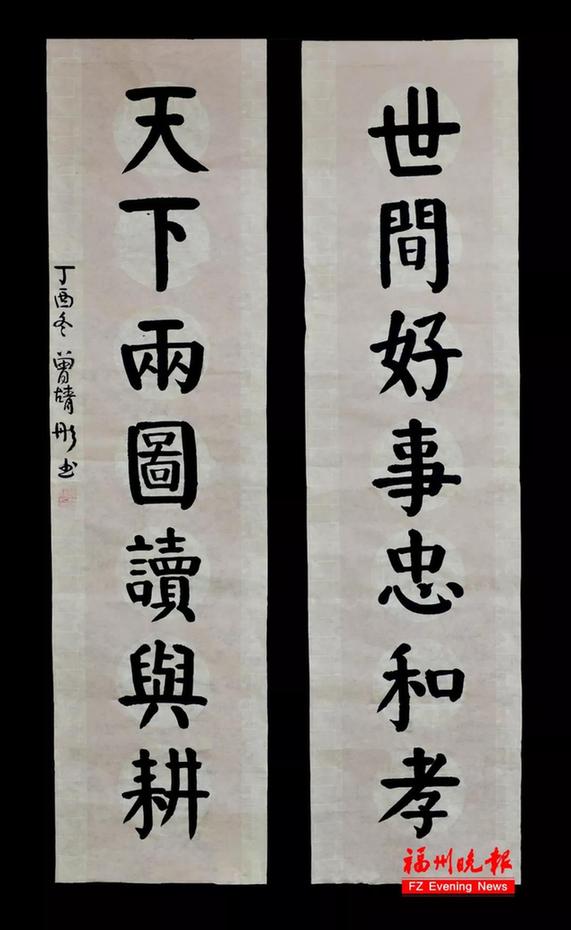 世間好事忠和孝
天下兩圖讀與耕
丁酉冬 曾靖彤书
福州晚报
FZ Evening News